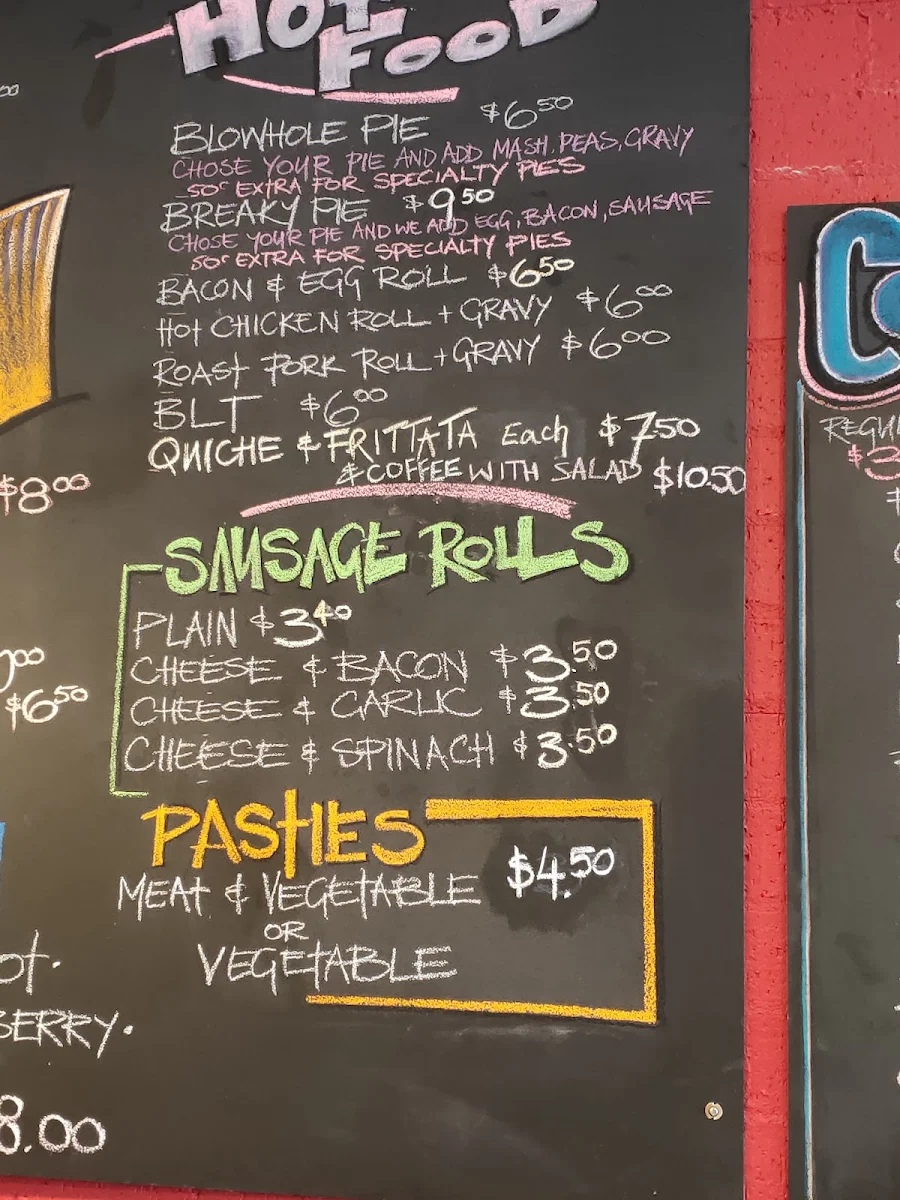 HOT
FOOD
BLOWHOLE PIE $6.50
CHOSE YOUR PIE AND ADD MASH, PEAS, GRAVY
50c EXTRA FOR SPECIALTY PIES
BREAKY PIE $9.50
CHOSE YOUR PIE AND WE ADD EGG, BACON, SAUSAGE
50c EXTRA FOR SPECIALTY PIES
BACON & EGG ROLL $6.50
HOT CHICKEN ROLL + GRAVY $6.00
ROAST PORK ROLL + GRAVY $6.00
BLT $6.00
QUICHE & FRITTATA Each $7.50
& COFFEE WITH SALAD $10.50
$8.00
SAUSAGE ROLLS
PLAIN $3.40
CHEESE & BACON $3.50
CHEESE & GARLIC $3.50
CHEESE & SPINACH $3.50
$6.50
PASTIES
MEAT & VEGETABLE $4.50
OR
VEGETABLE
BERRY.
8.00